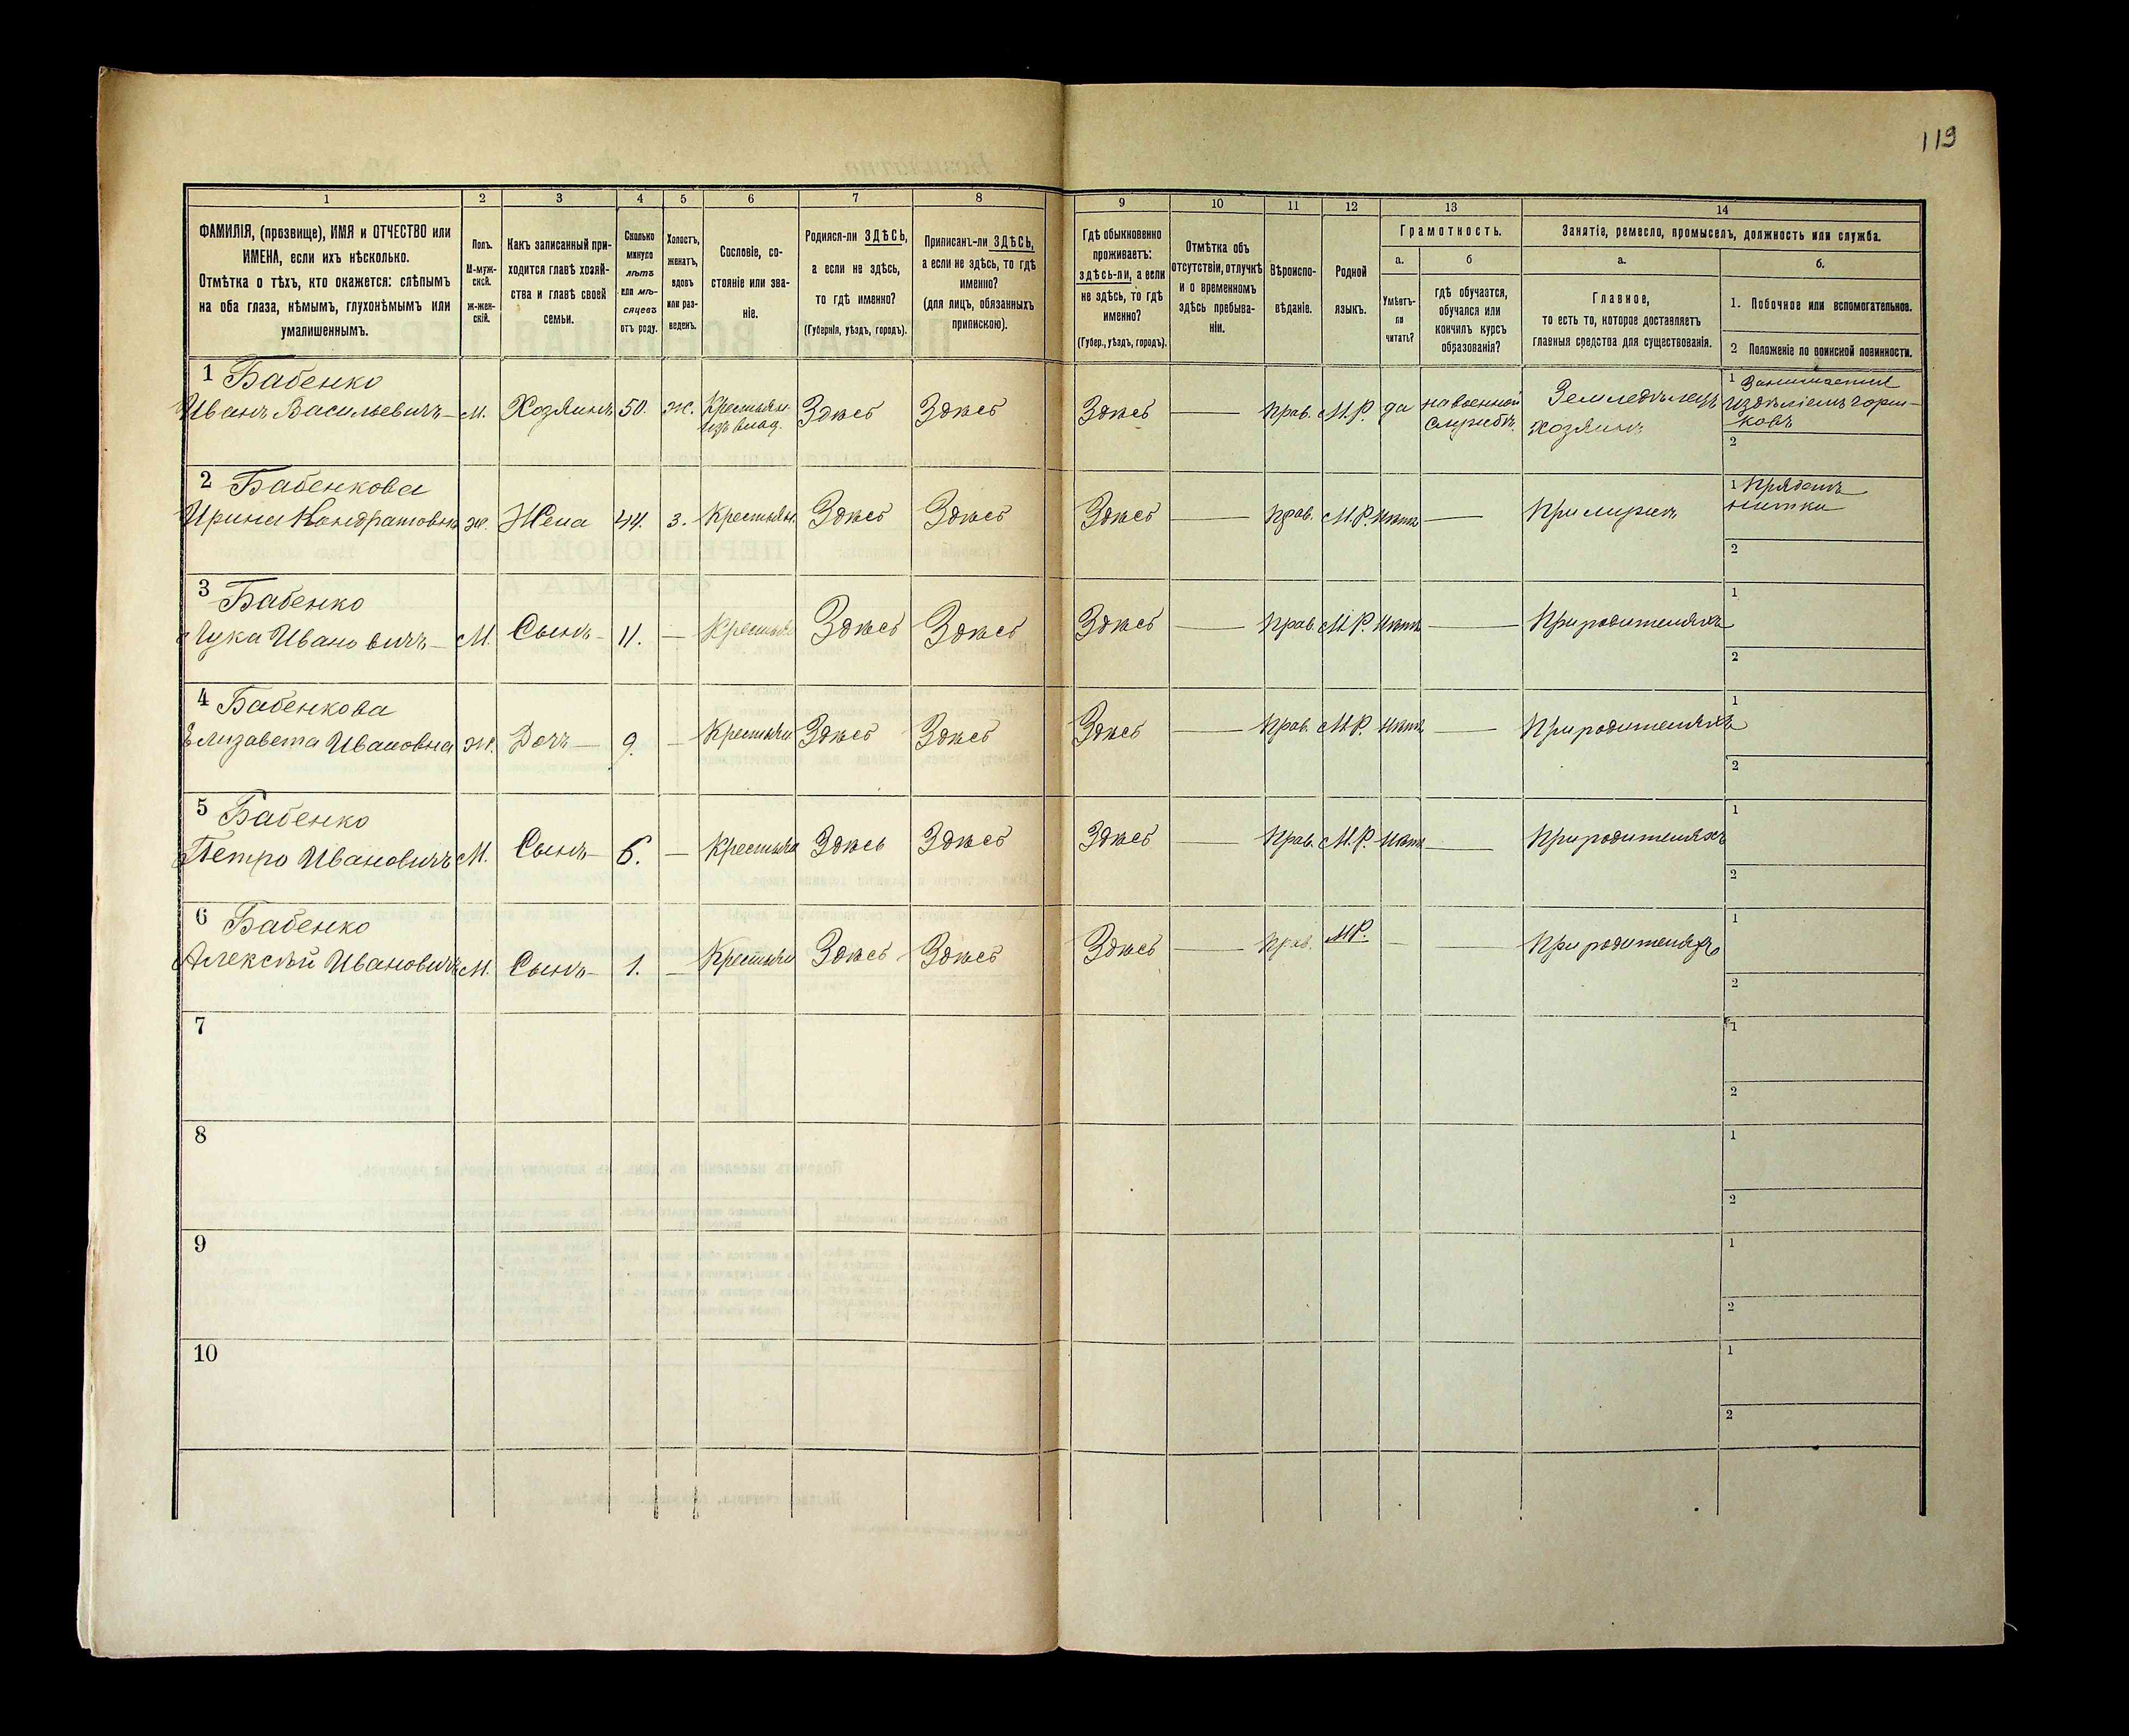 119
1 2 3 4 5 6 7 8 9 10 11 12 13 14
ФАМИЛІЯ, (прозвище), ИМЯ и ОТЧЕСТВО или
ИМЕНА, если ихъ нѣсколько.
Отмѣтка о тѣхъ, кто окажется: слѣпымъ
на оба глаза, нѣмымъ, глухонѣмымъ или
умалишеннымъ.
Полъ.
М-муж-
скій.
ж-жен-
скій.
Какъ записанный при-
ходится главѣ хозяй-
ства и главѣ своей
семьи.
Сколько
минуло
лѣтъ
или мѣ-
сяцевъ
отъ роду.
Холостъ,
женатъ,
вдовъ
или раз-
веденъ.
Сословіе, со-
стояніе или зва-
ніе.
Родился-ли ЗДѢСЬ,
а если не здѣсь,
то гдѣ именно?
(Губернія, уѣздъ, городъ).
Приписанъ-ли ЗДѢСЬ,
а если не здѣсь, то гдѣ
именно?
(для лицъ, обязанныхъ
припискою).
Гдѣ обыкновенно
проживаетъ:
здѣсь-ли, а если
не здѣсь, то гдѣ
именно?
(Губер., уѣздъ, городъ).
Отмѣтка объ
отсутствіи, отлучкѣ
и о временномъ
здѣсь пребыва-
ніи.
Вѣроиспо-
вѣданіе.
Родной
языкъ.
Грамотность.
а.
Умѣетъ-
ли
читать?
б
гдѣ обучается,
обучался или
кончилъ курсъ
образованія?
Занятіе, ремесло, промыселъ, должность или служба.
а.
Главное,
то есть то, которое доставляетъ
главныя средства для существованія.
б.
1. Побочное или вспомогательное.
2 Положеніе по воинской повинности.
1 Бабенко
Иванъ Васильевичъ — м. Хозяинъ 50. ж. Крестьян. изъ влад. Здѣсь Здѣсь Здѣсь — прав. М.Р. да на военной службѣ. Земледѣлецъ хозяинъ
1 Занимается
издѣліемъ горш-
ковъ
2
2 Бабенкова
Ирина Кондратовна ж. Жена 44. з. Крестьян. Здѣсь Здѣсь Здѣсь — прав. М.Р. нѣтъ —
1 Прядетъ
нитки
2
3 Бабенко
Лука Ивановичъ — М. Сынъ — 11. — Крестьян Здѣсь Здѣсь Здѣсь — прав. М.Р. нѣтъ — При родителяхъ
1
2
4 Бабенкова
Елизавета Ивановна ж. Дочь — 9. — Крестьян Здѣсь Здѣсь Здѣсь — прав. М.Р. нѣтъ — При родителяхъ
1
2
5 Бабенко
Петро Ивановичъ М. Сынъ — 6. — Крестьян Здѣсь Здѣсь Здѣсь — прав. М.Р. нѣтъ — При родителяхъ
1
2
6 Бабенко
Алексѣй Ивановичъ М. Сынъ — 1. — Крестьян Здѣсь Здѣсь Здѣсь — прав. М.Р. — — При родителяхъ
1
2
7
1
2
8
1
2
9
1
2
10
1
2